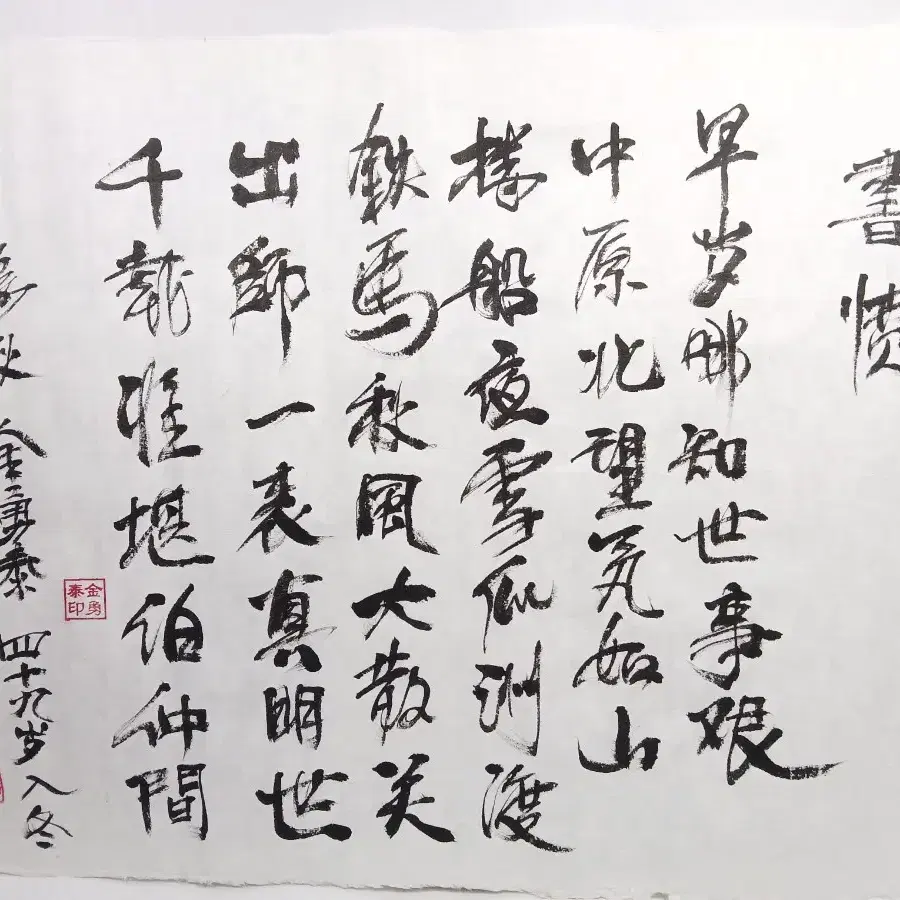 書愤
早岁那知世事艰
中原北望气如山
楼船夜雪瓜洲渡
鉄馬秋風大散关
出師一表真明世
千載谁堪伯仲間
秋 金勇泰 四十九岁入冬
金勇泰印